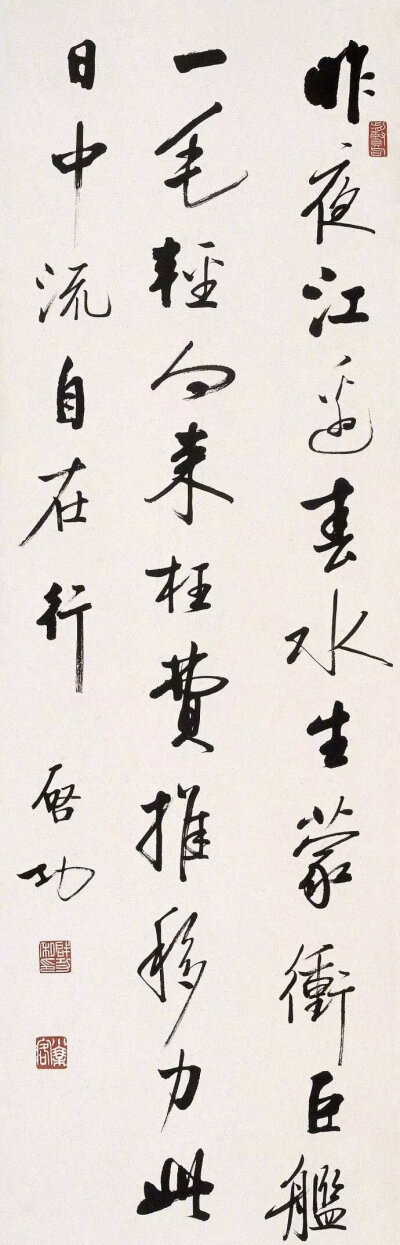 昨夜江邊春水生蒙衝巨艦
一毛輕向來枉費推移力此
日中流自在行
啓功